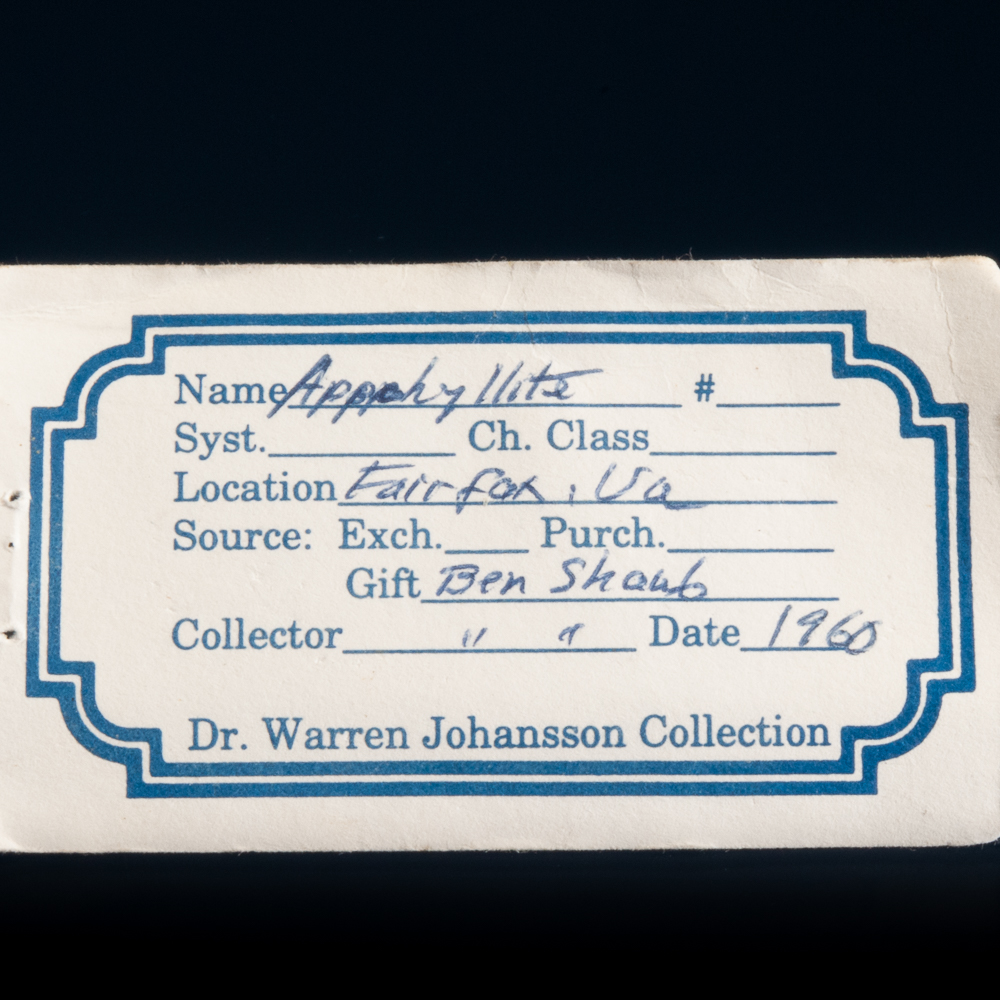 Name Appphyllite #
Syst. Ch. Class
Location Fairfox, Va
Source: Exch. Purch.
Gift Ben Shaub
Collector " " Date 1960
Dr. Warren Johansson Collection